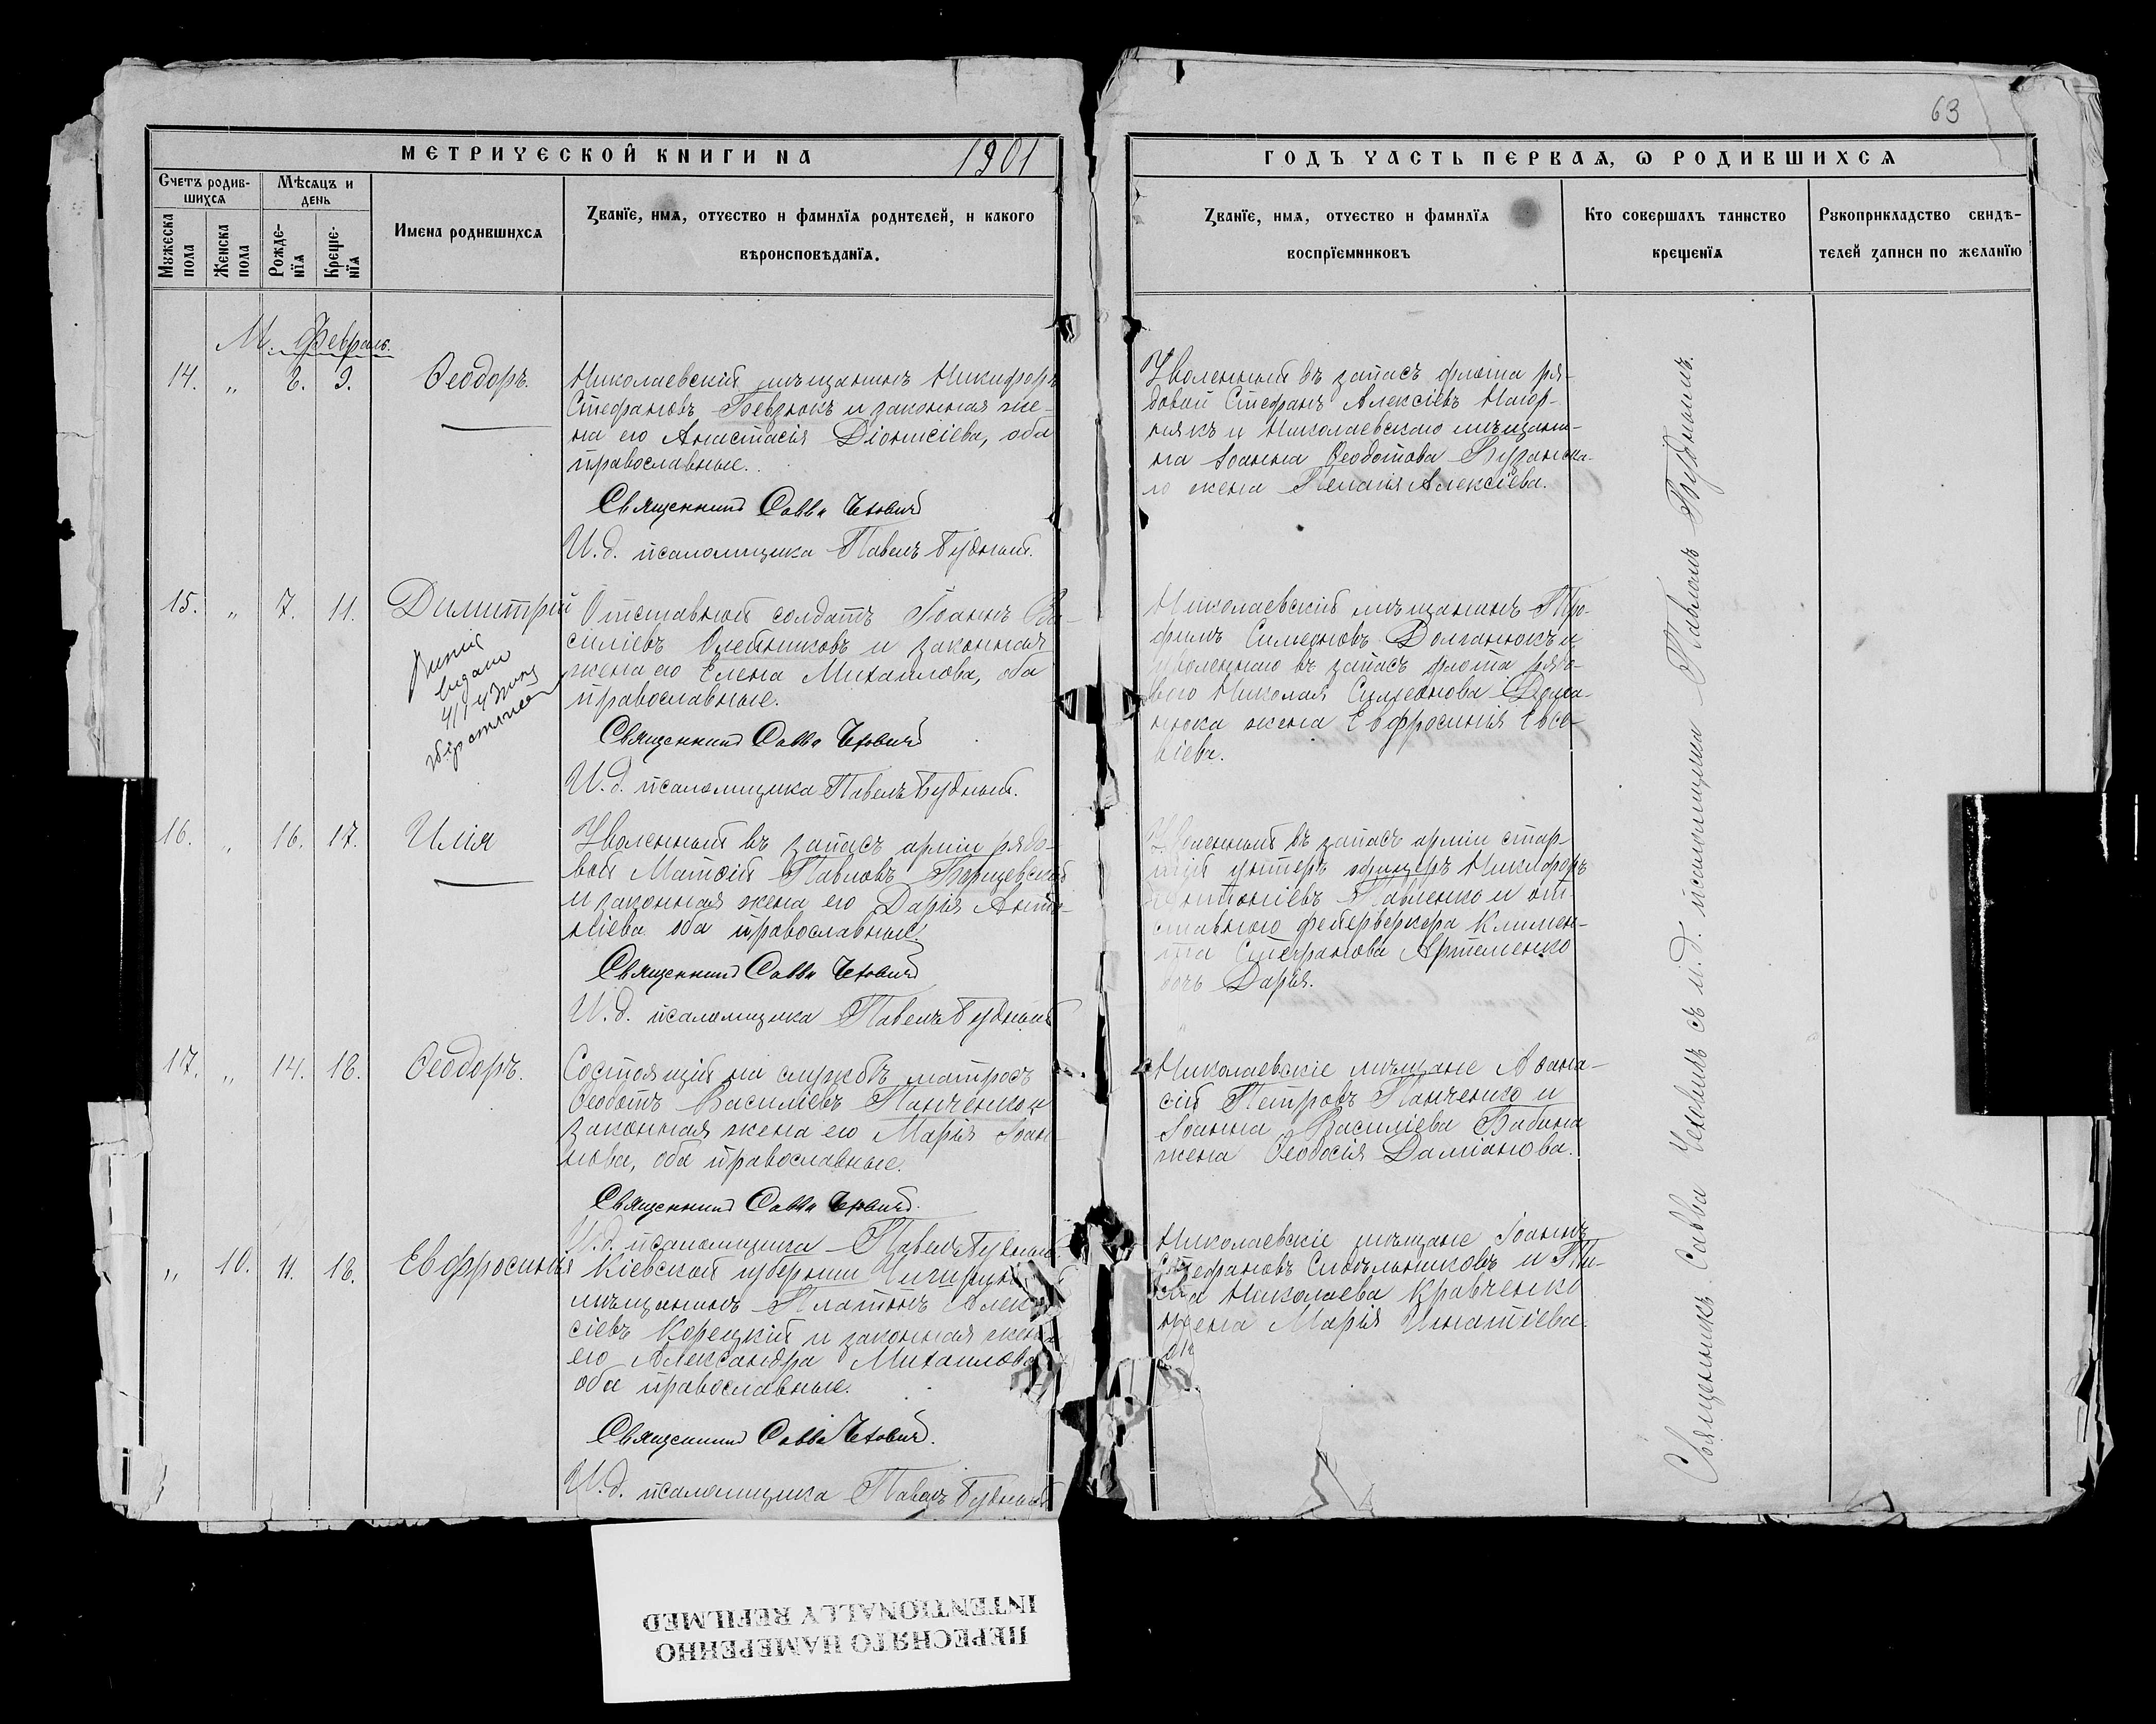 63
МЕТРИЧЕСКОЙ КНИГИ НА 1901
ГОДЪ ЧАСТЬ ПЕРВАЯ, Ѡ РОДИВШИХСЯ
Счетъ родив-
шихся
Мѣсяцъ и
день
Мужеска
пола
Женска
пола
Рожде-
нїя
Креще-
нїя
Имена родившихся
Званїе, имя, отчество и фамилїя родителей, и какого
вѣроисповѣданїя.
Званїе, имя, отчество и фамилїя
воспрїемниковъ
Кто совершалъ таинство
крещенїя
Рукоприкладство свидѣ-
телей записи по желанїю
М. Февраль.
14. „ 2. 9. Ѳеодоръ.
Николаевскій мѣщанинъ Никифоръ
Стефановъ и законная же-
на его Анастасія Діонисіева, оба
православные.
Священникъ Савва Чехович
И. д. псаломщика Павелъ Будный.
Уволенный въ запасъ флота ря-
довой Стефанъ Алексіевъ Нагор-
някъ и Николаевскаго мѣщани-
на Іоанна Ѳеодотова
го жена Пелагія Алексіева.
15. „ 7. 11. Димитрій
видано
Отставной солдатъ Іоаннъ Ва-
силіевъ Олейниковъ и законная
жена его Елена Михаилова, оба
православные.
Священникъ Савва Чехович
И. д. псаломщика Павелъ Будный.
Николаевскій мѣщанинъ Тро-
фимъ Симеоновъ Долганюкъ и
уволеннаго въ запасъ флота рядо-
вого Николая Симеонова Долга-
нюка жена Евфросинія Евсе-
віева.
16. „ 16. 17. Илія
Уволенный въ запасъ арміи рядо-
вой Матѳій Павловъ Борщевскій
и законная жена его Дарія Анто-
ніева оба православные.
Священникъ Савва Чехович
И. д. псаломщика Павелъ Будный
Уволенный въ запасъ арміи стар-
шій унтеръ офицеръ Никифоръ
Антоніевъ Павленко и от-
ставного фейерверкера Климен-
та Стефанова Артеменко
дочь Дарія.
17. „ 14. 18. Ѳеодоръ.
Состоящій на службѣ матросъ
Ѳеодотъ Василіевъ Панченко и
законная жена его Марія Іоан-
нова, оба православные.
Священникъ Савва Чехович.
И. д. псаломщика Павелъ Будный.
Николаевскіе мѣщане Аѳана-
сій Петровъ Панченко и
Іоанна Василіева Бабина
жена Ѳеодосія Даміанова.
„ 10. 11. 18. Евфросинія
Кіевской губерніи
мѣщанинъ Платонъ Алек-
сіевъ Корецкій и законная жена
его Александра Михаилова
оба православные.
Священникъ Савва Чехович.
И. д. псаломщика Павелъ Будный
Николаевскіе мѣщане Іоаннъ
Стефановъ Синѣльниковъ и Ти-
та Николаева Кравченко
жена Марія Игнатіева.
Священникъ Савва Чеховичъ съ и. д. псаломщика Павломъ Буднымъ.
ПЕРЕСНЯТО НАМЕРЕННО
INTENTIONALLY REFILMED